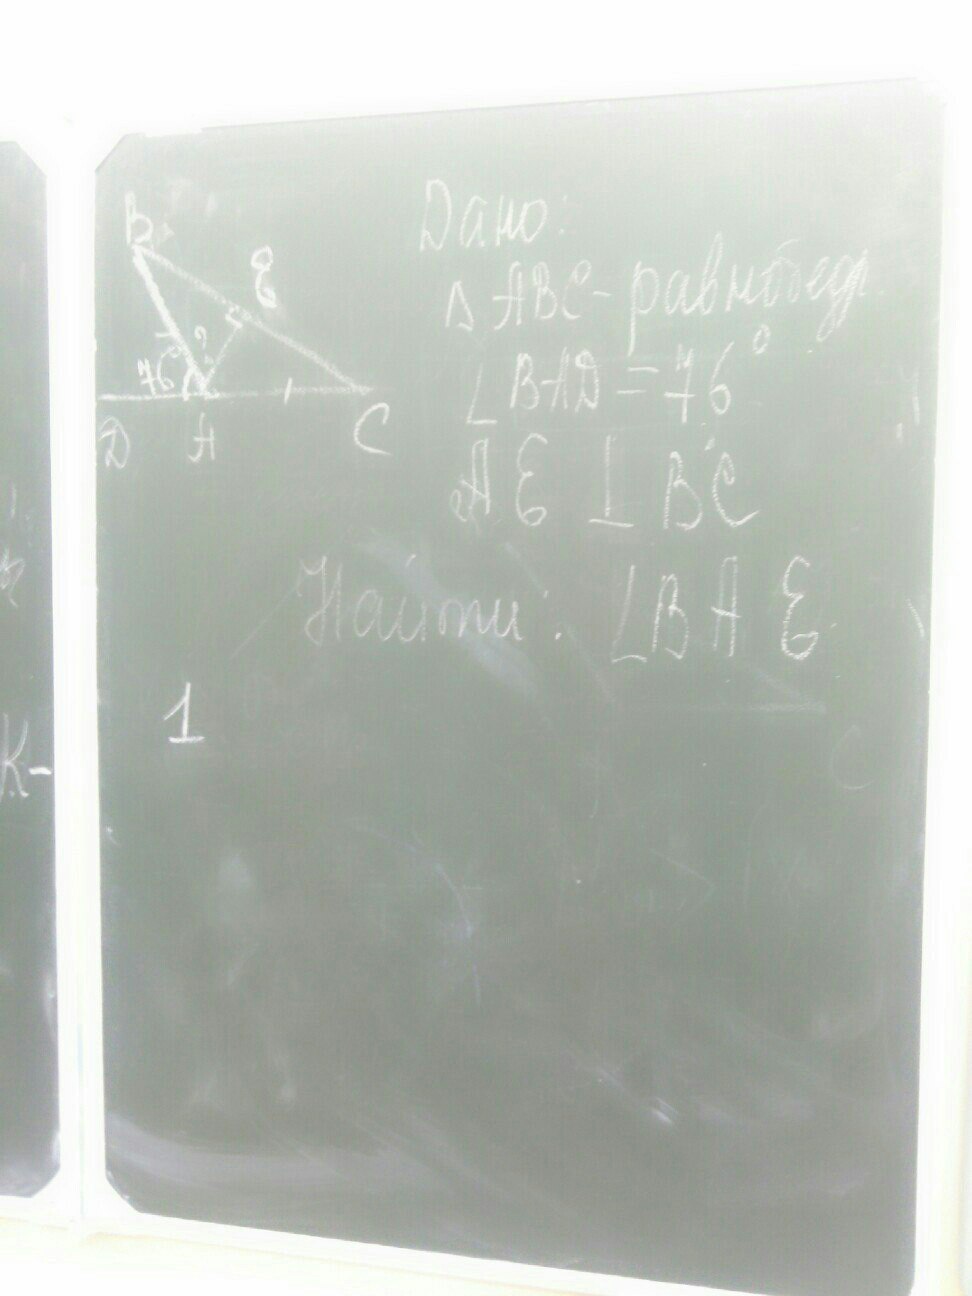 B
E
?
76°
D
A
C
Дано:
Δ ABC - равнобед
∠ BAD = 76°
AE ⊥ BC
Найти: ∠BAE
1
C
K-